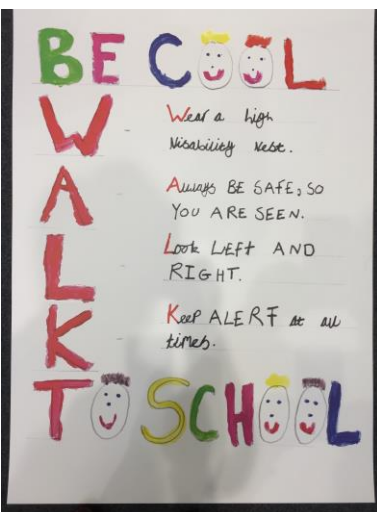 BE COOL
W - Wear a high
Visability Vest.
A - Always BE SAFE, SO
YOU ARE SEEN.
L - Look LEFT AND
RIGHT.
K - Keep ALERT at all
times.
TO SCHOOL